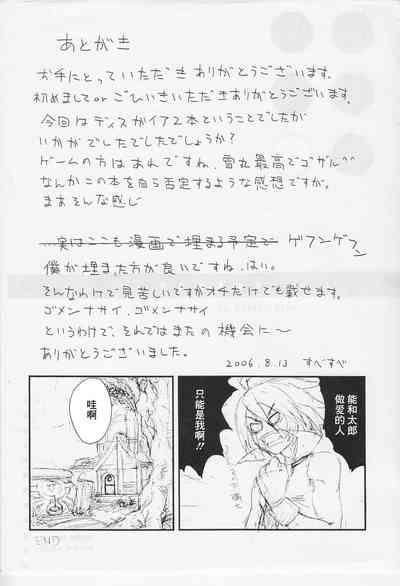 あとがき
お手にとっていただきありがとうございます。
初めましてorごひいきいただきありがとうございます。
今回はディスガイア2本ということでしたが
いかがでしたでしたでしょうか?
ゲームの方はあれですね、雪丸最高でゴザル^^
なんかこの本を自ら否定するような感想ですが。
まあそんな感じ
実はここも漫画で埋まる予定で ゲフンゲフン
僕が埋まった方が良いですね、はい。
そんなわけで見苦しいですがオチだけでも載せます。
ゴメンナサイ、ゴメンナサイ
というわけで、それではまたの機会に〜
ありがとうございました。
2006.8.13 すべすべ
能和太郎
做爱的人
只能是我啊!!
哇啊
END